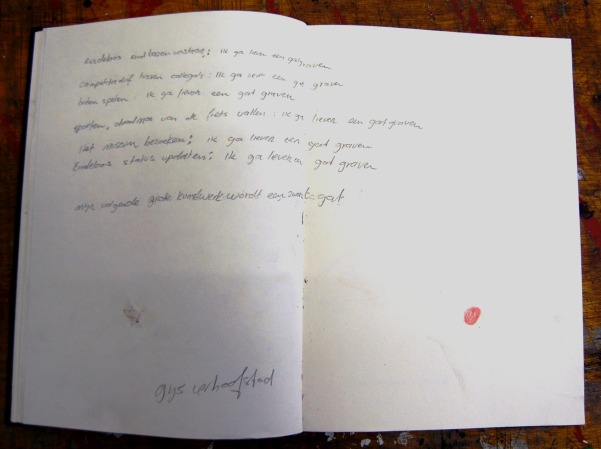 ik ga liever een gat graven
competitiedrif tussen collega's: ik ga liever een gat graven
laten spelen: ik ga liever een gat graven
sporten, van de fiets vallen: ik ga liever een gat graven
Het museum bezoeken: ik ga liever een gat graven
Eindeloos status updaten: ik ga liever een gat graven
mijn volgende grote kunstwerk wordt een zwarte gat
gijs verhoofstad